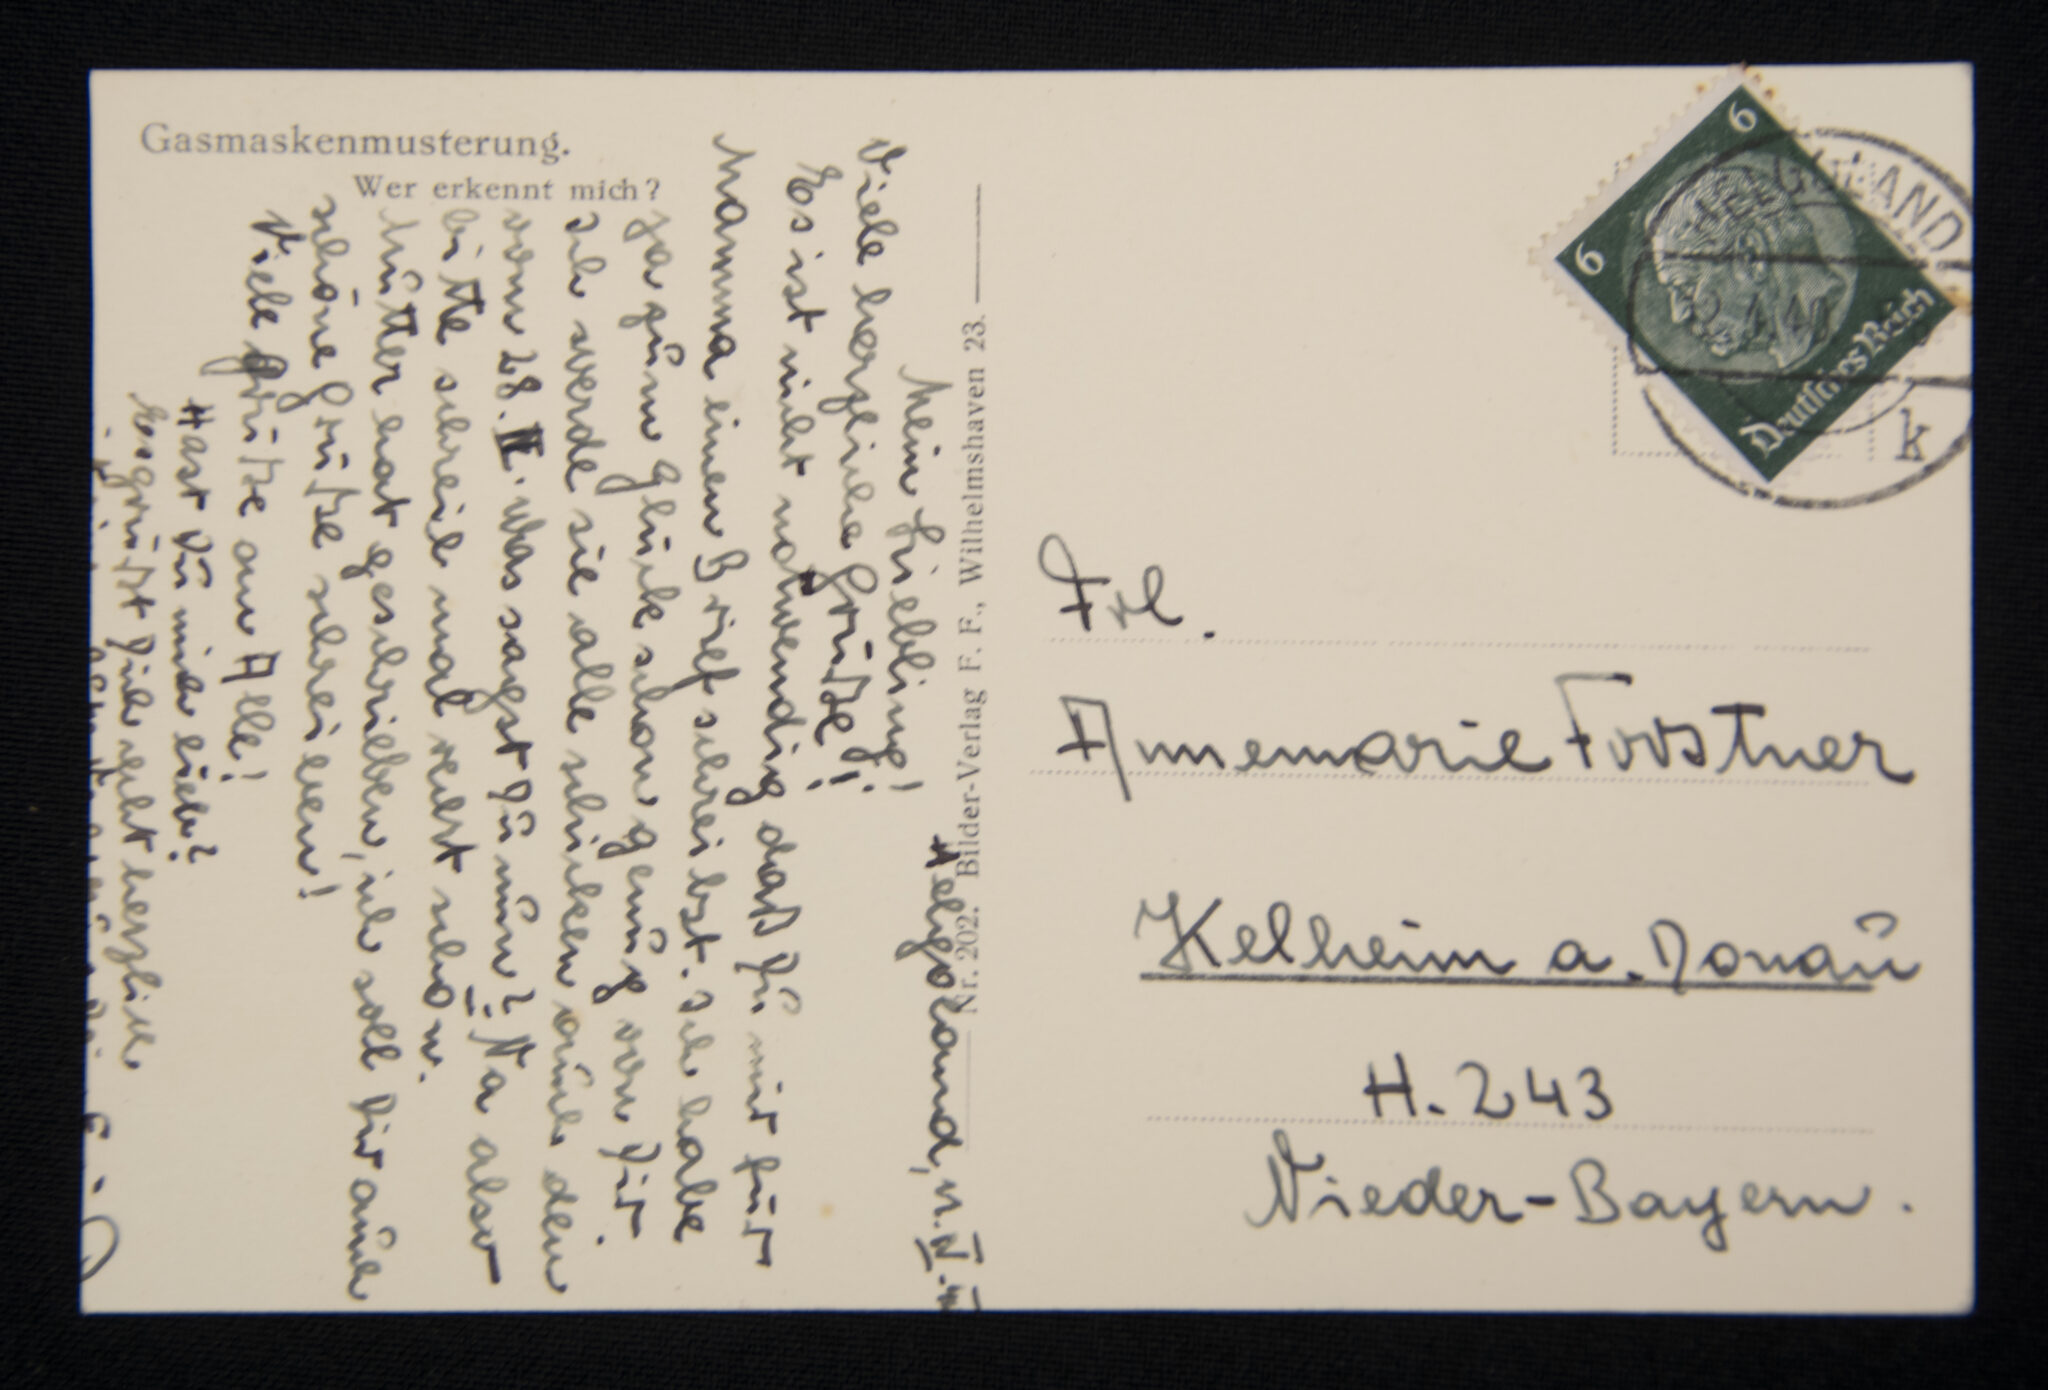 Gasmaskenmusterung.
Wer erkennt mich?
Helgoland,
Mein Liebling!
Viele herzliche Grüße!
Es ist nicht notwendig daß Du mir für
Mamma einen Brief schreibst. Ich habe
ja zum Glück schon genug von Dir.
Ich werde sie alle schicken auch den
vom 28. Was sagst Du nun? Na also
bitte schreib mal recht schön.
Mutter hat geschrieben, ich soll Dir auch
schöne Grüße schreiben!
Viele Grüße an Alle!
Hast Du mich lieb?
Es grüßt Dich recht herzlich
Nr. 202. Bilder-Verlag F. F., Wilhelmshaven 23.
6
6
Deutsches Reich
k
Frl.
Annemarie Forstner
Kelheim a. Donau
H. 243
Nieder-Bayern.